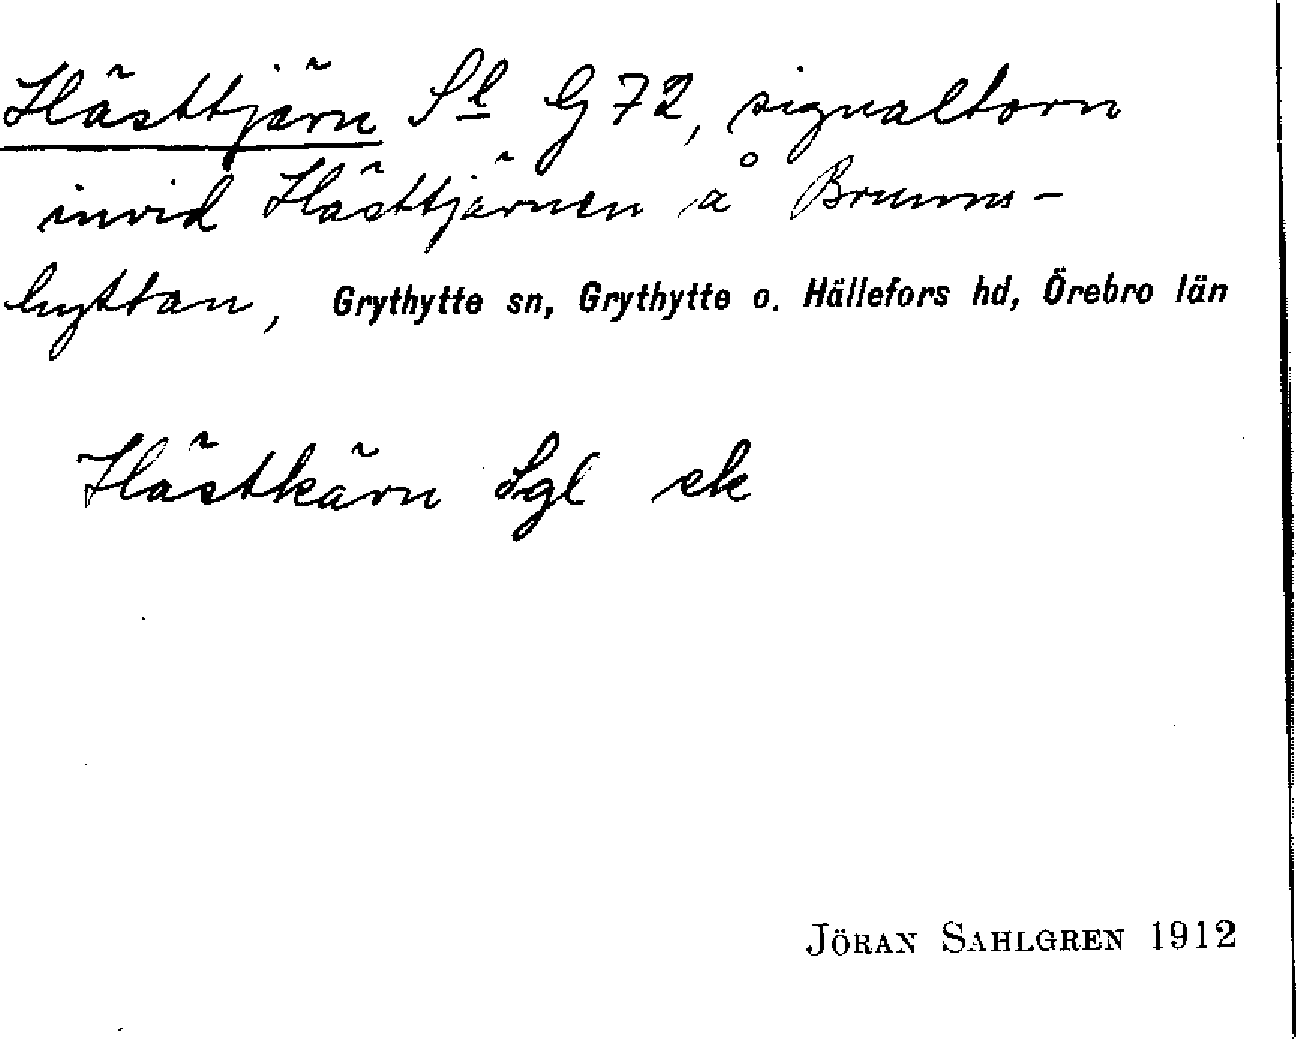 Hästtjärn Sl G 72, signaltorn
invid Hästtjärnen å Brunns-
hyttan, Grythytte sn, Grythytte o. Hällefors hd, Örebro län
Hästkärn Sgl ek
JÖRAN SAHLGREN 1912